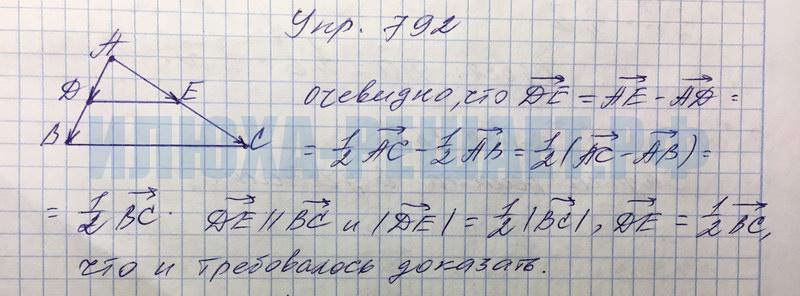 Упр. 792
A
D E
B C
очевидно, что $\overrightarrow{DE} = \overrightarrow{AE} - \overrightarrow{AD} =$
$= \frac{1}{2}\overrightarrow{AC} - \frac{1}{2}\overrightarrow{AB} = \frac{1}{2}(\overrightarrow{AC} - \overrightarrow{AB}) =$
$= \frac{1}{2}\overrightarrow{BC}.$ $\overrightarrow{DE} \parallel \overrightarrow{BC}$ и $|\overrightarrow{DE}| = \frac{1}{2}|\overrightarrow{BC}|, \overrightarrow{DE} = \frac{1}{2}\overrightarrow{BC},$
что и требовалось доказать.